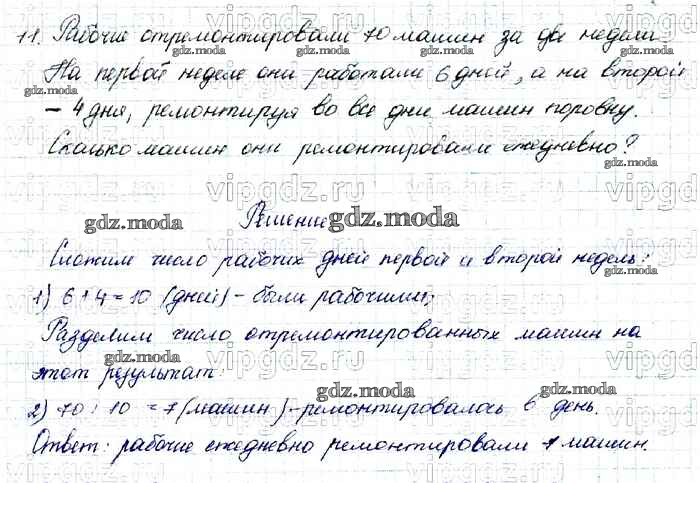 11. Рабочие отремонтировали 70 машин за две недели.
На первой неделе они работали 6 дней, а на второй
– 4 дня, ремонтируя во все дни машин поровну.
Сколько машин они ремонтировали ежедневно?
Решение
Сложим число рабочих дней первой и второй недель:
1) 6+4=10 (дней) – были рабочими;
Разделим число отремонтированных машин на
этот результат:
2) 70 : 10 = 7 (машин) – ремонтировалось в день.
Ответ: рабочие ежедневно ремонтировали 7 машин.